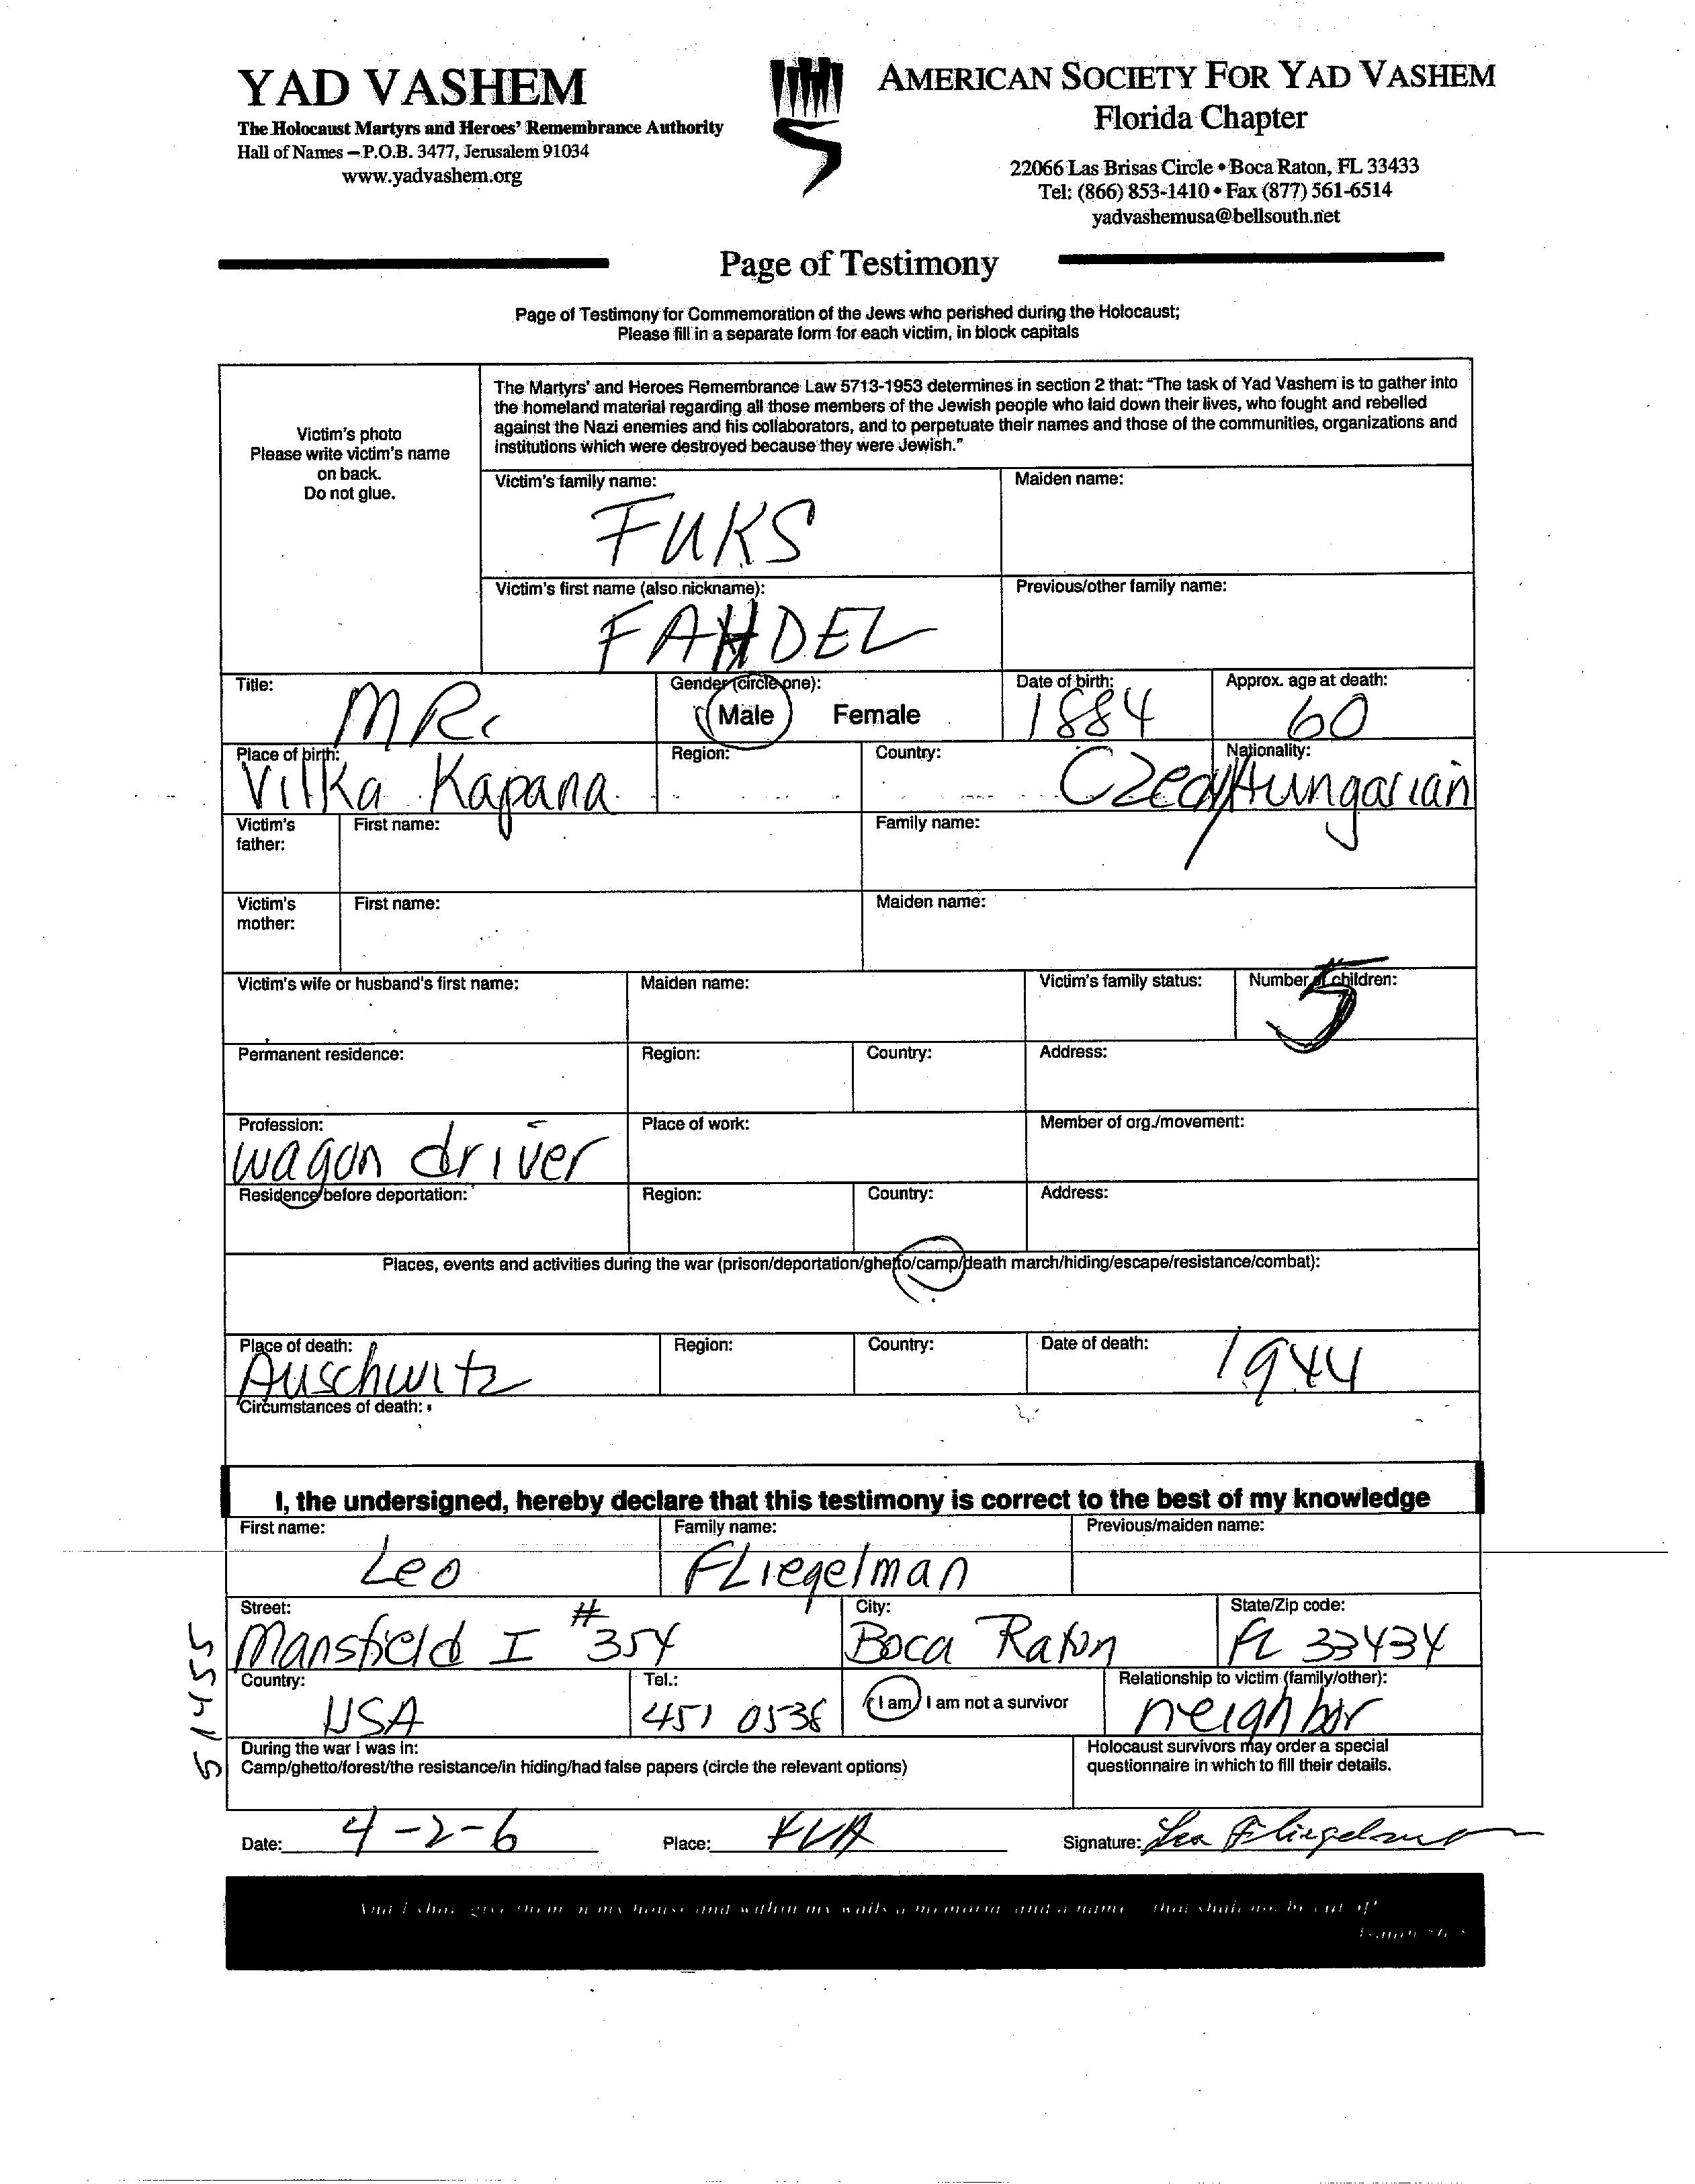 YAD VASHEM
The Holocaust Martyrs and Heroes' Remembrance Authority
Hall of Names – P.O.B. 3477, Jerusalem 91034
www.yadvashem.org
AMERICAN SOCIETY FOR YAD VASHEM
Florida Chapter
22066 Las Brisas Circle • Boca Raton, FL 33433
Tel: (866) 853-1410 • Fax (877) 561-6514
yadvashemusa@bellsouth.net
Page of Testimony
Page of Testimony for Commemoration of the Jews who perished during the Holocaust;
Please fill in a separate form for each victim, in block capitals
Victim's photo
Please write victim's name
on back.
Do not glue.
The Martyrs' and Heroes Remembrance Law 5713-1953 determines in section 2 that: "The task of Yad Vashem is to gather into
the homeland material regarding all those members of the Jewish people who laid down their lives, who fought and rebelled
against the Nazi enemies and his collaborators, and to perpetuate their names and those of the communities, organizations and
institutions which were destroyed because they were Jewish."
Victim's family name: Maiden name:
FUKS
Victim's first name (also nickname): Previous/other family name:
Title: Gender (circle one): Date of birth: Approx. age at death:
MR. Male Female 1884 60
Place of birth: Region: Country: Nationality:
Vilka Kapana Czech/Hungarian
Victim's father: First name: Family name:
Victim's mother: First name: Maiden name:
Victim's wife or husband's first name: Maiden name: Victim's family status: Number of children:
5
Permanent residence: Region: Country: Address:
Profession: Place of work: Member of org./movement:
wagon driver
Residence before deportation: Region: Country: Address:
Places, events and activities during the war (prison/deportation/ghetto/camp/death march/hiding/escape/resistance/combat):
Place of death: Region: Country: Date of death:
Auschwitz 1944
Circumstances of death:
I, the undersigned, hereby declare that this testimony is correct to the best of my knowledge
First name: Family name: Previous/maiden name:
Leo FLiegelman
Street: City: State/Zip code:
Mansfield I #354 Boca Raton FL 33434
Country: Tel.: Relationship to victim (family/other):
USA 451 0536 I am/ I am not a survivor neighbor
During the war I was in:
Camp/ghetto/forest/the resistance/in hiding/had false papers (circle the relevant options)
Holocaust survivors may order a special
questionnaire in which to fill their details.
51455
Date: 4-2-6 Place: Signature: Leo Fliegelman